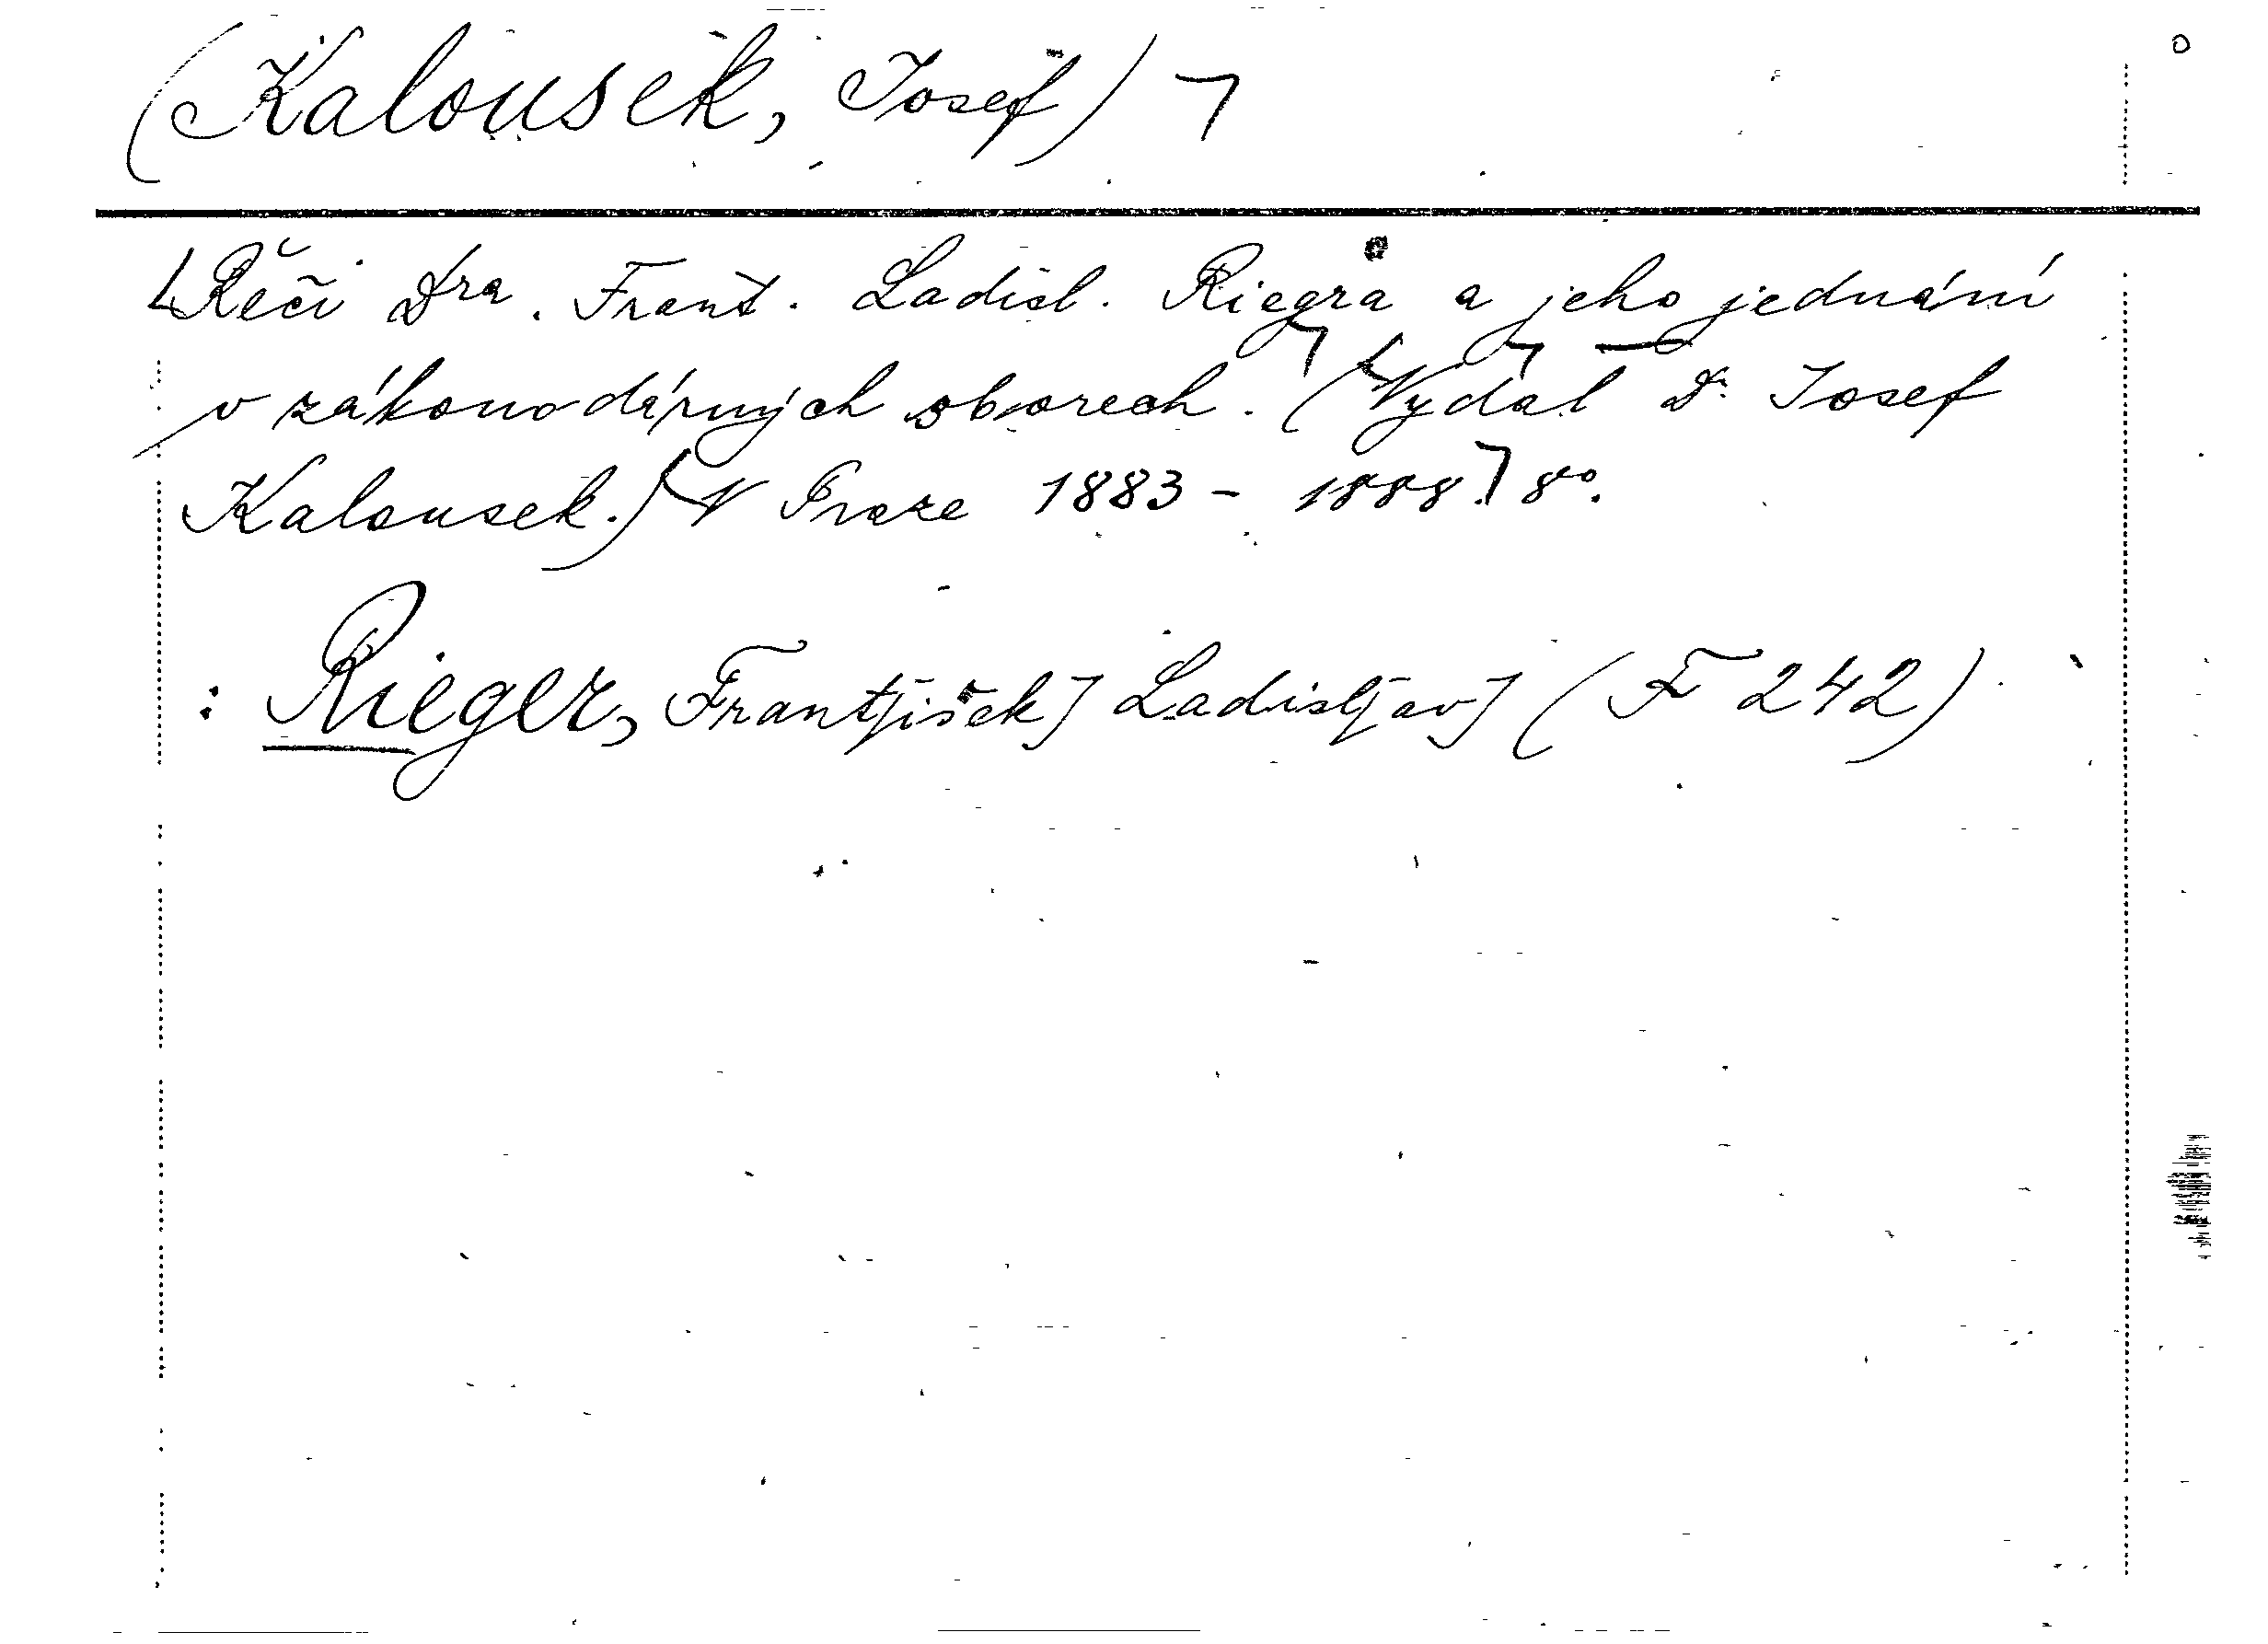 (Kalousek, Josef)
Řeči Dra. Frant. Ladisl. Riegra a jeho jednání
v zákonodárných sborech. (Vydal Dr. Josef
Kalousek.) V Praze 1883 - 1888. 8°.
: Rieger, Frant[išek] Ladisl[av] (F 242)